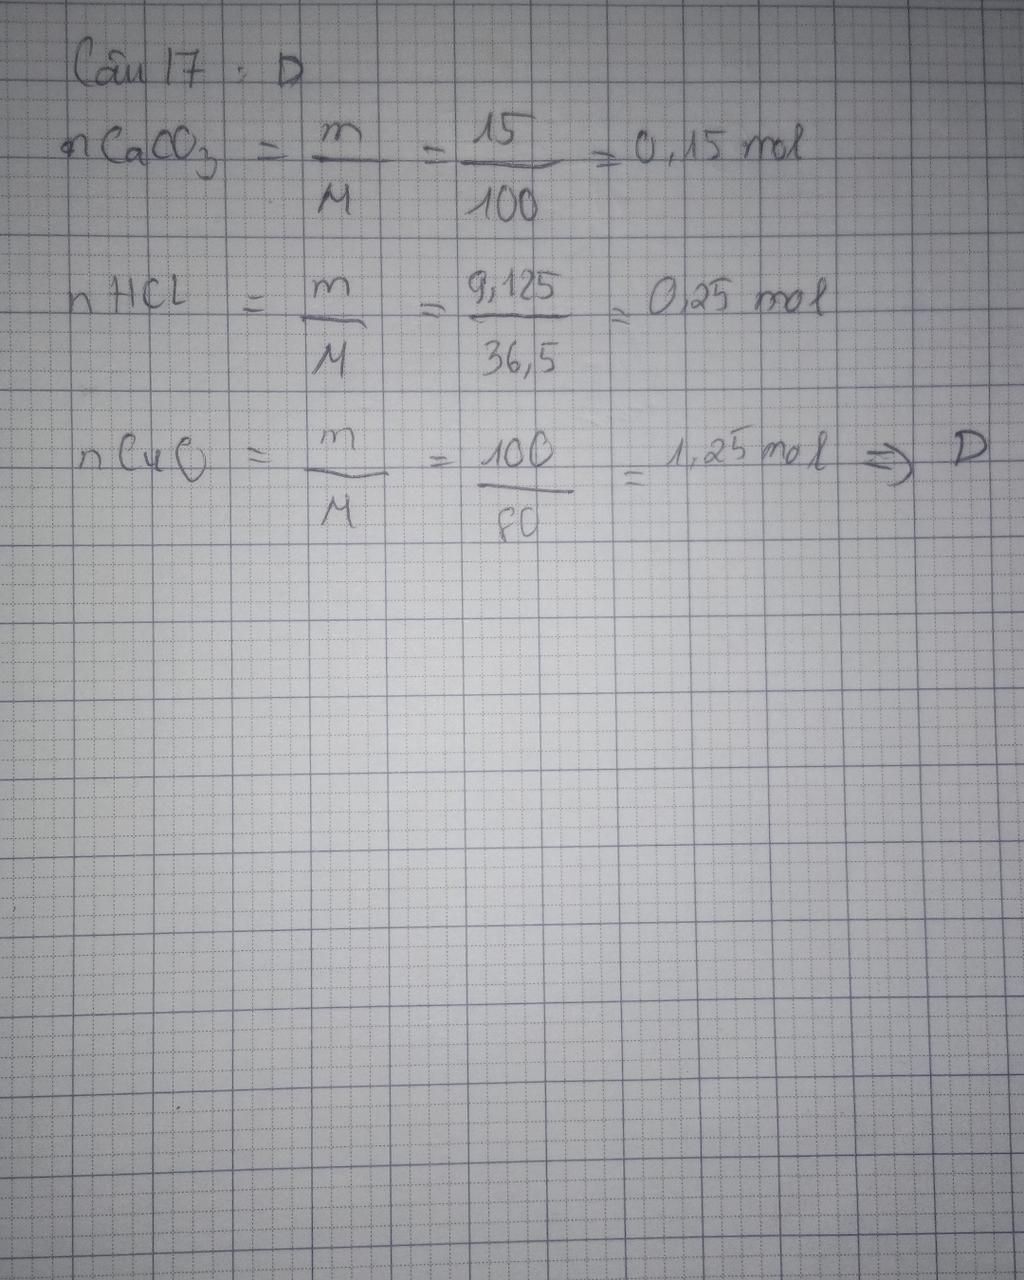 Câu 17 : D
nCaCO3 = m/M = 15/100 = 0,15 mol
nHCl = m/M = 9,125/36,5 = 0,25 mol
nCuO = m/M = 100/80 = 1,25 mol => D